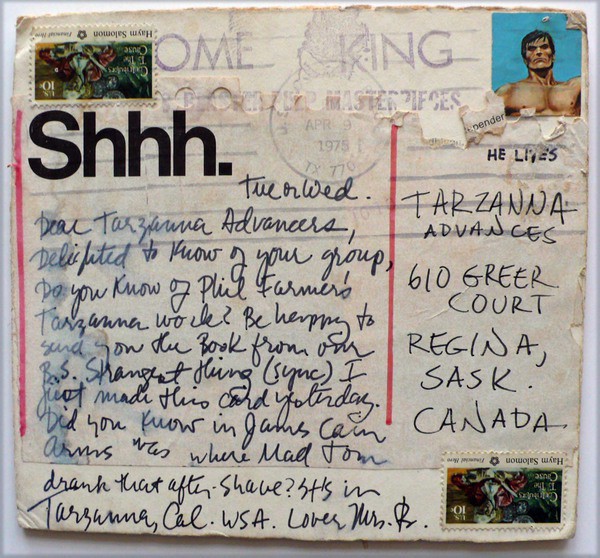 Haym Salomon
Financial Hero
Contributors To The Cause
US 10c
OME KING
MASTERPIECES
pender
APR 9
1975
TX 770
Shhh.
HE LIVES
Tue or Wed.
Dear Tarzanna Advancers,
Delighted to know of your group,
Do you know of Phil Farmer's
Tarzanna work? Be happy to
send you the Book from our
B.S. Strangest thing (sync) I
just made this card yesterday.
Did you know in James Cain
Arms was where Mad Tom
drank that after-shave? It's in
Tarzanna, Cal. USA. Love, Mrs. B.
TARZANNA
ADVANCES
610 GREER
COURT
REGINA,
SASK.
CANADA
Haym Salomon
Financial Hero
Contributors To The Cause
US 10c